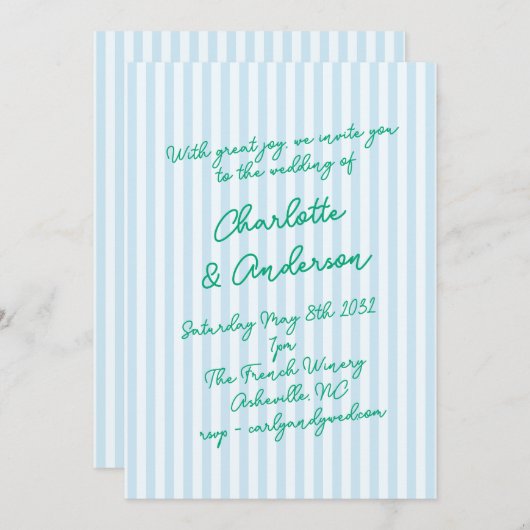 With great joy, we invite you
to the wedding of
Charlotte
& Anderson
Saturday May 8th 2032
7pm
The French Winery
Asheville, NC
rsvp - carlyandywed.com